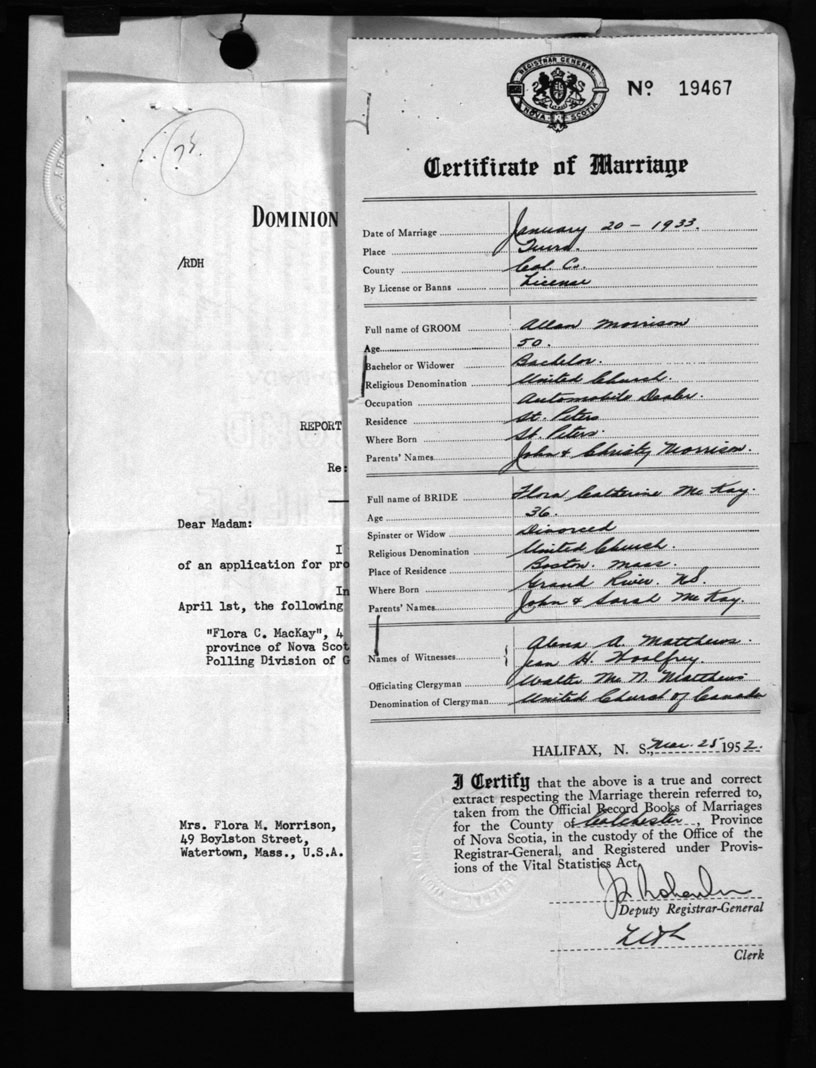 REGISTRAR GENERAL
NOVA SCOTIA
Nº 19467
Certificate of Marriage
Date of Marriage January 20 - 1933.
Place Truro.
County Col. Co.
By License or Banns License
Full name of GROOM Allan Morrison
Age 50.
Bachelor or Widower Bachelor.
Religious Denomination United Church.
Occupation Automobile Dealer.
Residence St. Peters
Where Born St. Peters.
Parents' Names John & Christy Morrison.
Full name of BRIDE Flora Catherine McKay.
Age 36.
Spinster or Widow Divorced
Religious Denomination United Church.
Place of Residence Boston. Mass.
Where Born Grand River. N.S.
Parents' Names John & Sarah McKay.
Names of Witnesses Alena A. Matthews.
Jean H. Woolfrey.
Officiating Clergyman Walter McN. Matthews
Denomination of Clergyman United Church of Canada
HALIFAX, N. S., Mar. 25 1952.
I Certify that the above is a true and correct
extract respecting the Marriage therein referred to,
taken from the Official Record Books of Marriages
for the County of Colchester, Province
of Nova Scotia, in the custody of the Office of the
Registrar-General, and Registered under Provis-
ions of the Vital Statistics Act.
Deputy Registrar-General
Clerk
DOMINION
/RDH
REPORT
Re:
Dear Madam:
I
of an application for pro
In
April 1st, the following
"Flora C. MacKay", 4
province of Nova Scot
Polling Division of G
Mrs. Flora M. Morrison,
49 Boylston Street,
Watertown, Mass., U.S.A.